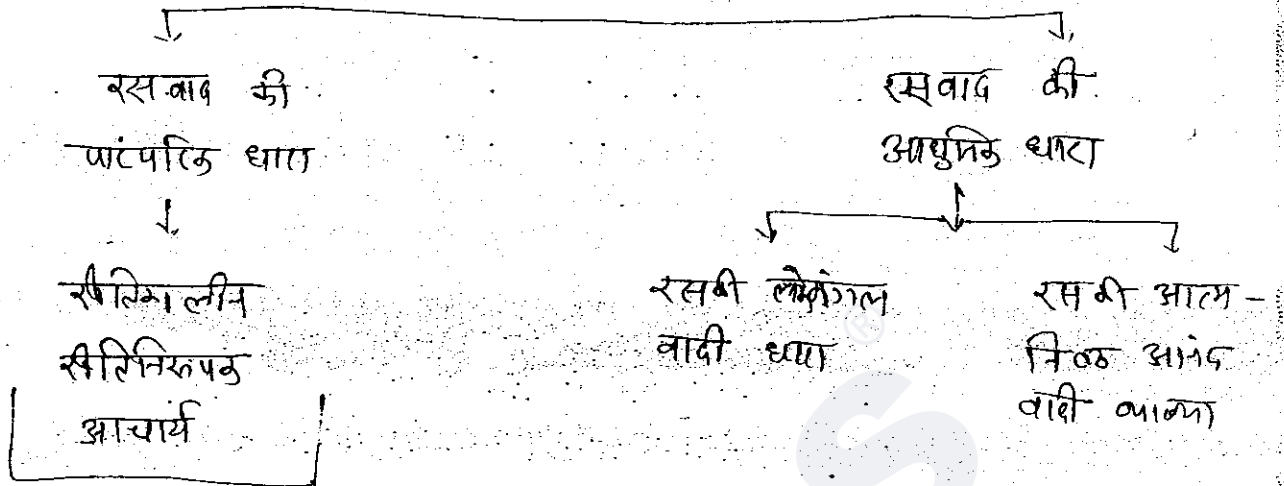 रसवाद की
पारंपरिक धारा
रीतिकालीन
रीतिनिरूपक
आचार्य
रसवाद की
आधुनिक धारा
रसकी लोकमंगल
वादी धारा
रस की आत्म -
निष्ठ आनंद
वादी व्याख्या